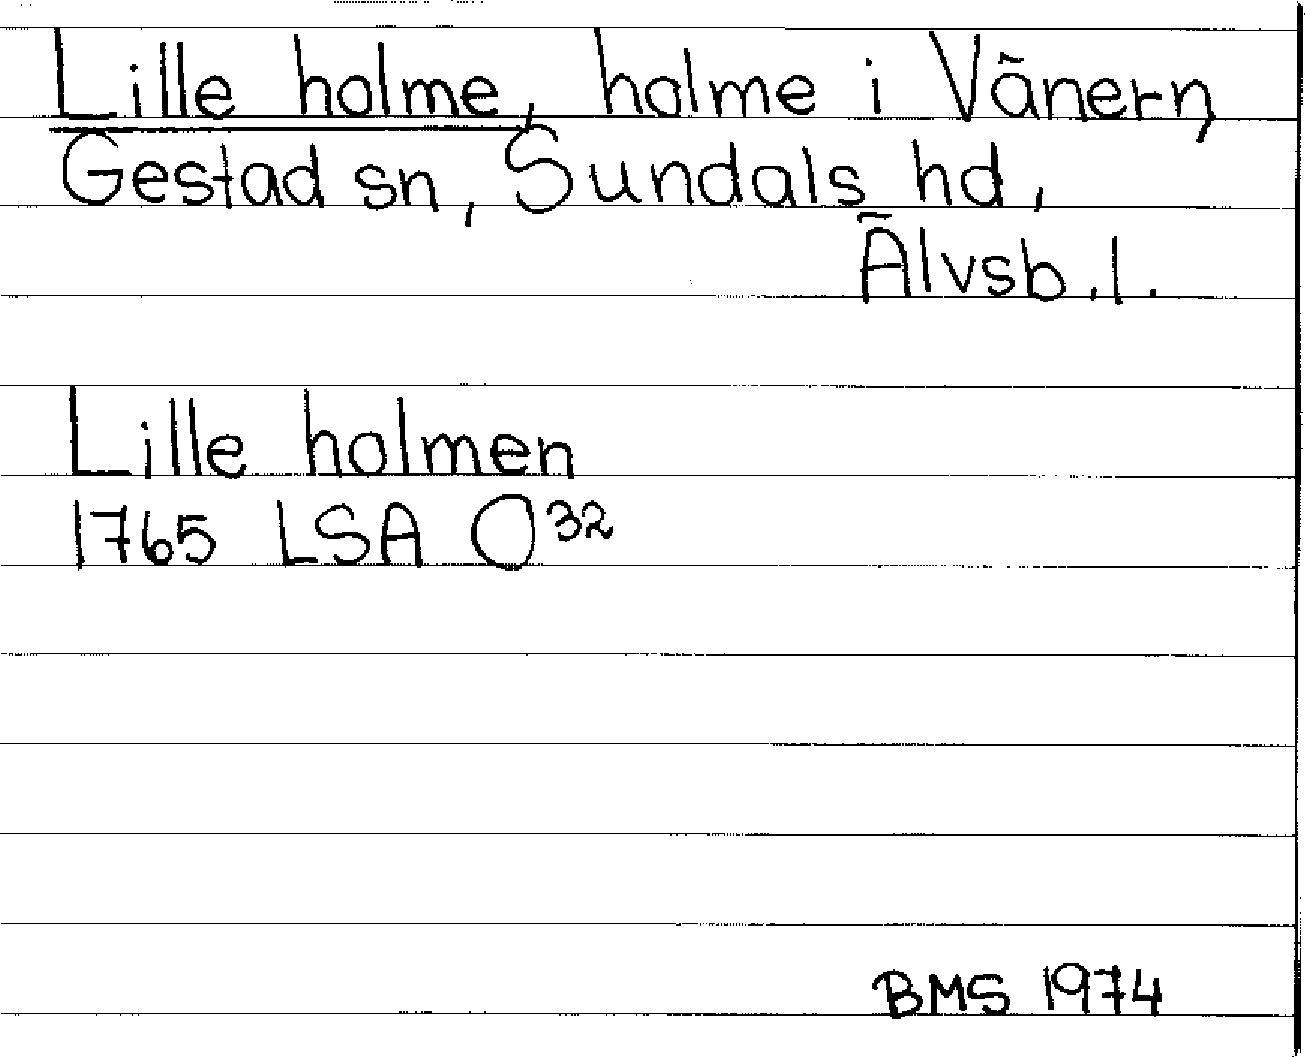 Lille holme, holme i Vänern,
Gestad sn, Sundals hd,
Älvsb. l.
Lille holmen
1765 LSA O32
BMS 1974